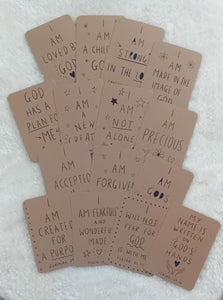 I
AM
LOVED BY
GOD
I
AM
A CHILD
GOD
I
AM
STRONG
IN THE LO
I
AM
MADE IN THE
IMAGE OF
GOD
GOD
HAS A
PLAN FO
ME
I
AM
A NEW
I
AM
NOT
ALONE
I
AM
PRECIOUS
I
AM
ACCEPTED
I
AM
FORGIVE
I
AM
GODS
I
AM
CREATED
FOR
A PURPO
I
AM FEARFUL
AND
WONDERFUL
MADE
I
WILL NOT
FEAR FOR
GOD
IS WITH ME
MY
NAME IS
WRITTEN
ON
GOD'S
HANDS